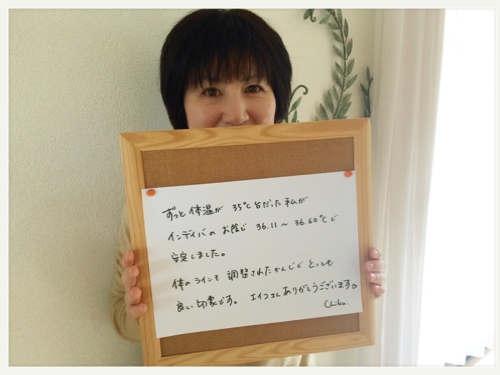 ずっと体温が 35℃台だった私が
インディバの お陰で 36.11〜36.60℃で
安定しました。
体のラインも 調整されたかんじで とっても
良い印象です。 エイコさん ありがとうございます。
Chiho